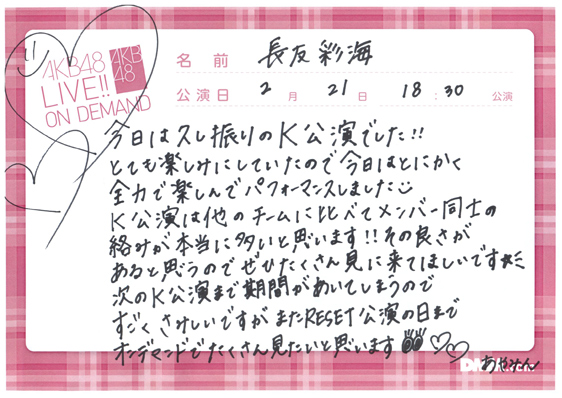 AKB48
LIVE!!
ON DEMAND
AKB
48
名前 長友彩海
公演日 2月 21日 18:30 公演
今日は久し振りのK公演でした!!
とても楽しみにしていたので今日はとにかく
全力で楽しんでパフォーマンスしました
K公演は他のチームに比べてメンバー同士の
絡みが本当に多いと思います!!その良さが
あると思うのでぜひたくさん見に来てほしいです
次のK公演まで期間があいてしまうので
すごくさみしいですがまたRESET公演の日まで
オンデマンドでたくさん見たいと思います
あやみん